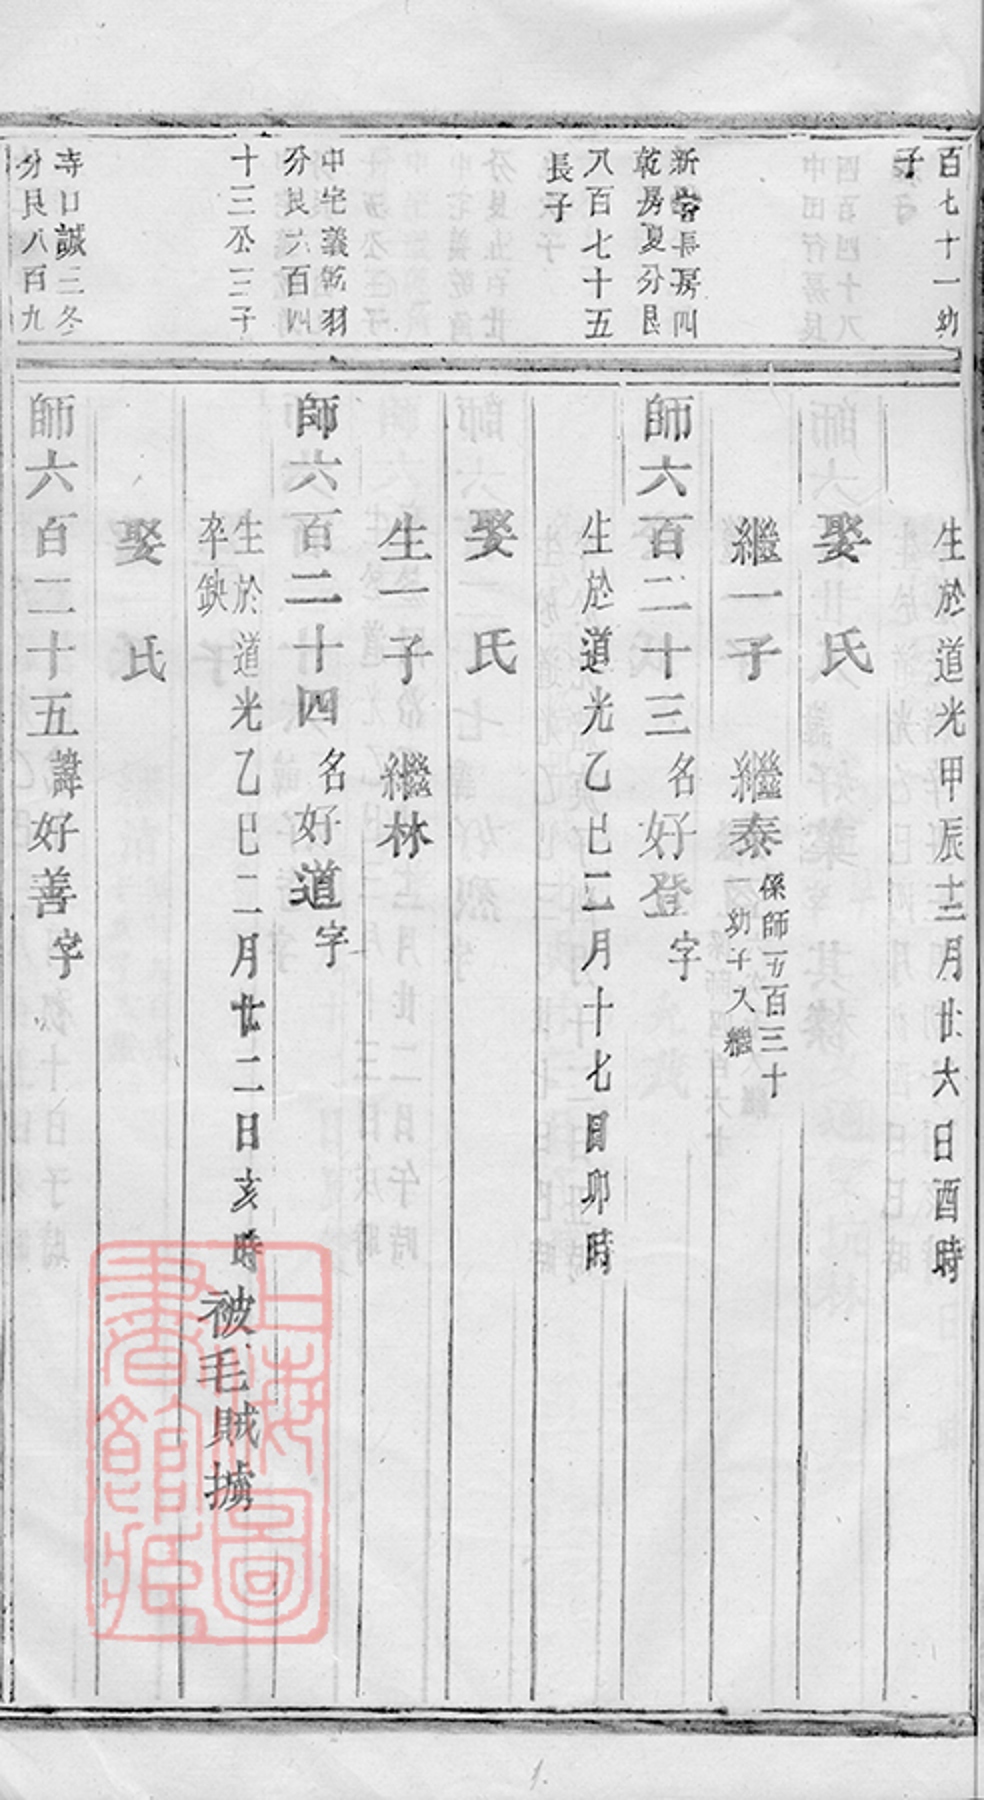 百七十一幼
子
新當長房四
乾房夏分艮
八百七十五
長子
中宅義乾羽
分艮六百四
十三公三子
寺口誠三冬
分艮八百九
生於道光甲辰十二月廿六日酉時
娶氏
繼一子 繼泰 係師一百三十一幼子入繼
師六百二十三名好登字
生於道光乙巳二月十七日卯時
娶氏
生一子 繼林
師六百二十四名好道字
生於道光乙巳二月廿二日亥時被毛賊擄
卒缺
娶氏
師六百二十五諱好善字
上海圖
書館藏